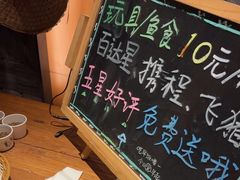 玩具/鱼食 10元/
百达星、携程、飞猪
五星好评
免费送哦